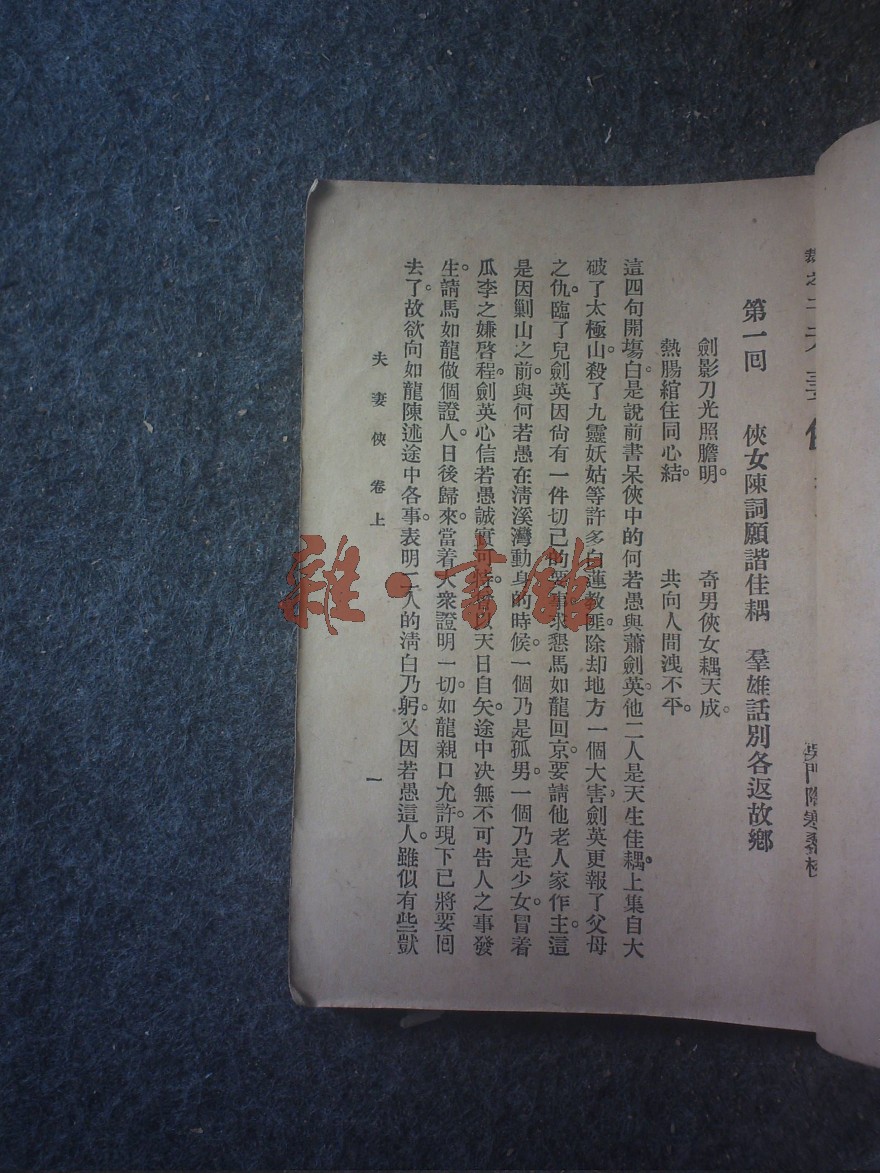 第一回　俠女陳詞願諧佳耦　羣雄話別各返故鄉
劍影刀光照膽明。　奇男俠女耦天成。
熱腸綰住同心結。　共向人間洩不平。
這四句開塲白。是說前書呆俠中的何若愚與蕭劍英。他二人是天生佳耦。上集自大
破了太極山。殺了九靈妖姑等許多白蓮教匪。除却地方一個大害。劍英更報了父母
之仇。臨了兒劍英因尙有一件切己的要事。求懇馬如龍回京。要請他老人家作主。這
是因剿山之前。與何若愚在淸溪灣動身的時候。一個乃是孤男。一個乃是少女。冒着
瓜李之嫌啓程。劍英心信若愚誠實可
天日自矢。途中决無不可告人之事發
生。請馬如龍做個證人。日後歸來。當着大衆證明一切。如龍親口允許。現下已將要回
去了。故欲向如龍陳述途中各事。表明二人的淸白乃躬。又因若愚這人。雖似有些獃
夫妻俠　卷上
一
雜·書館